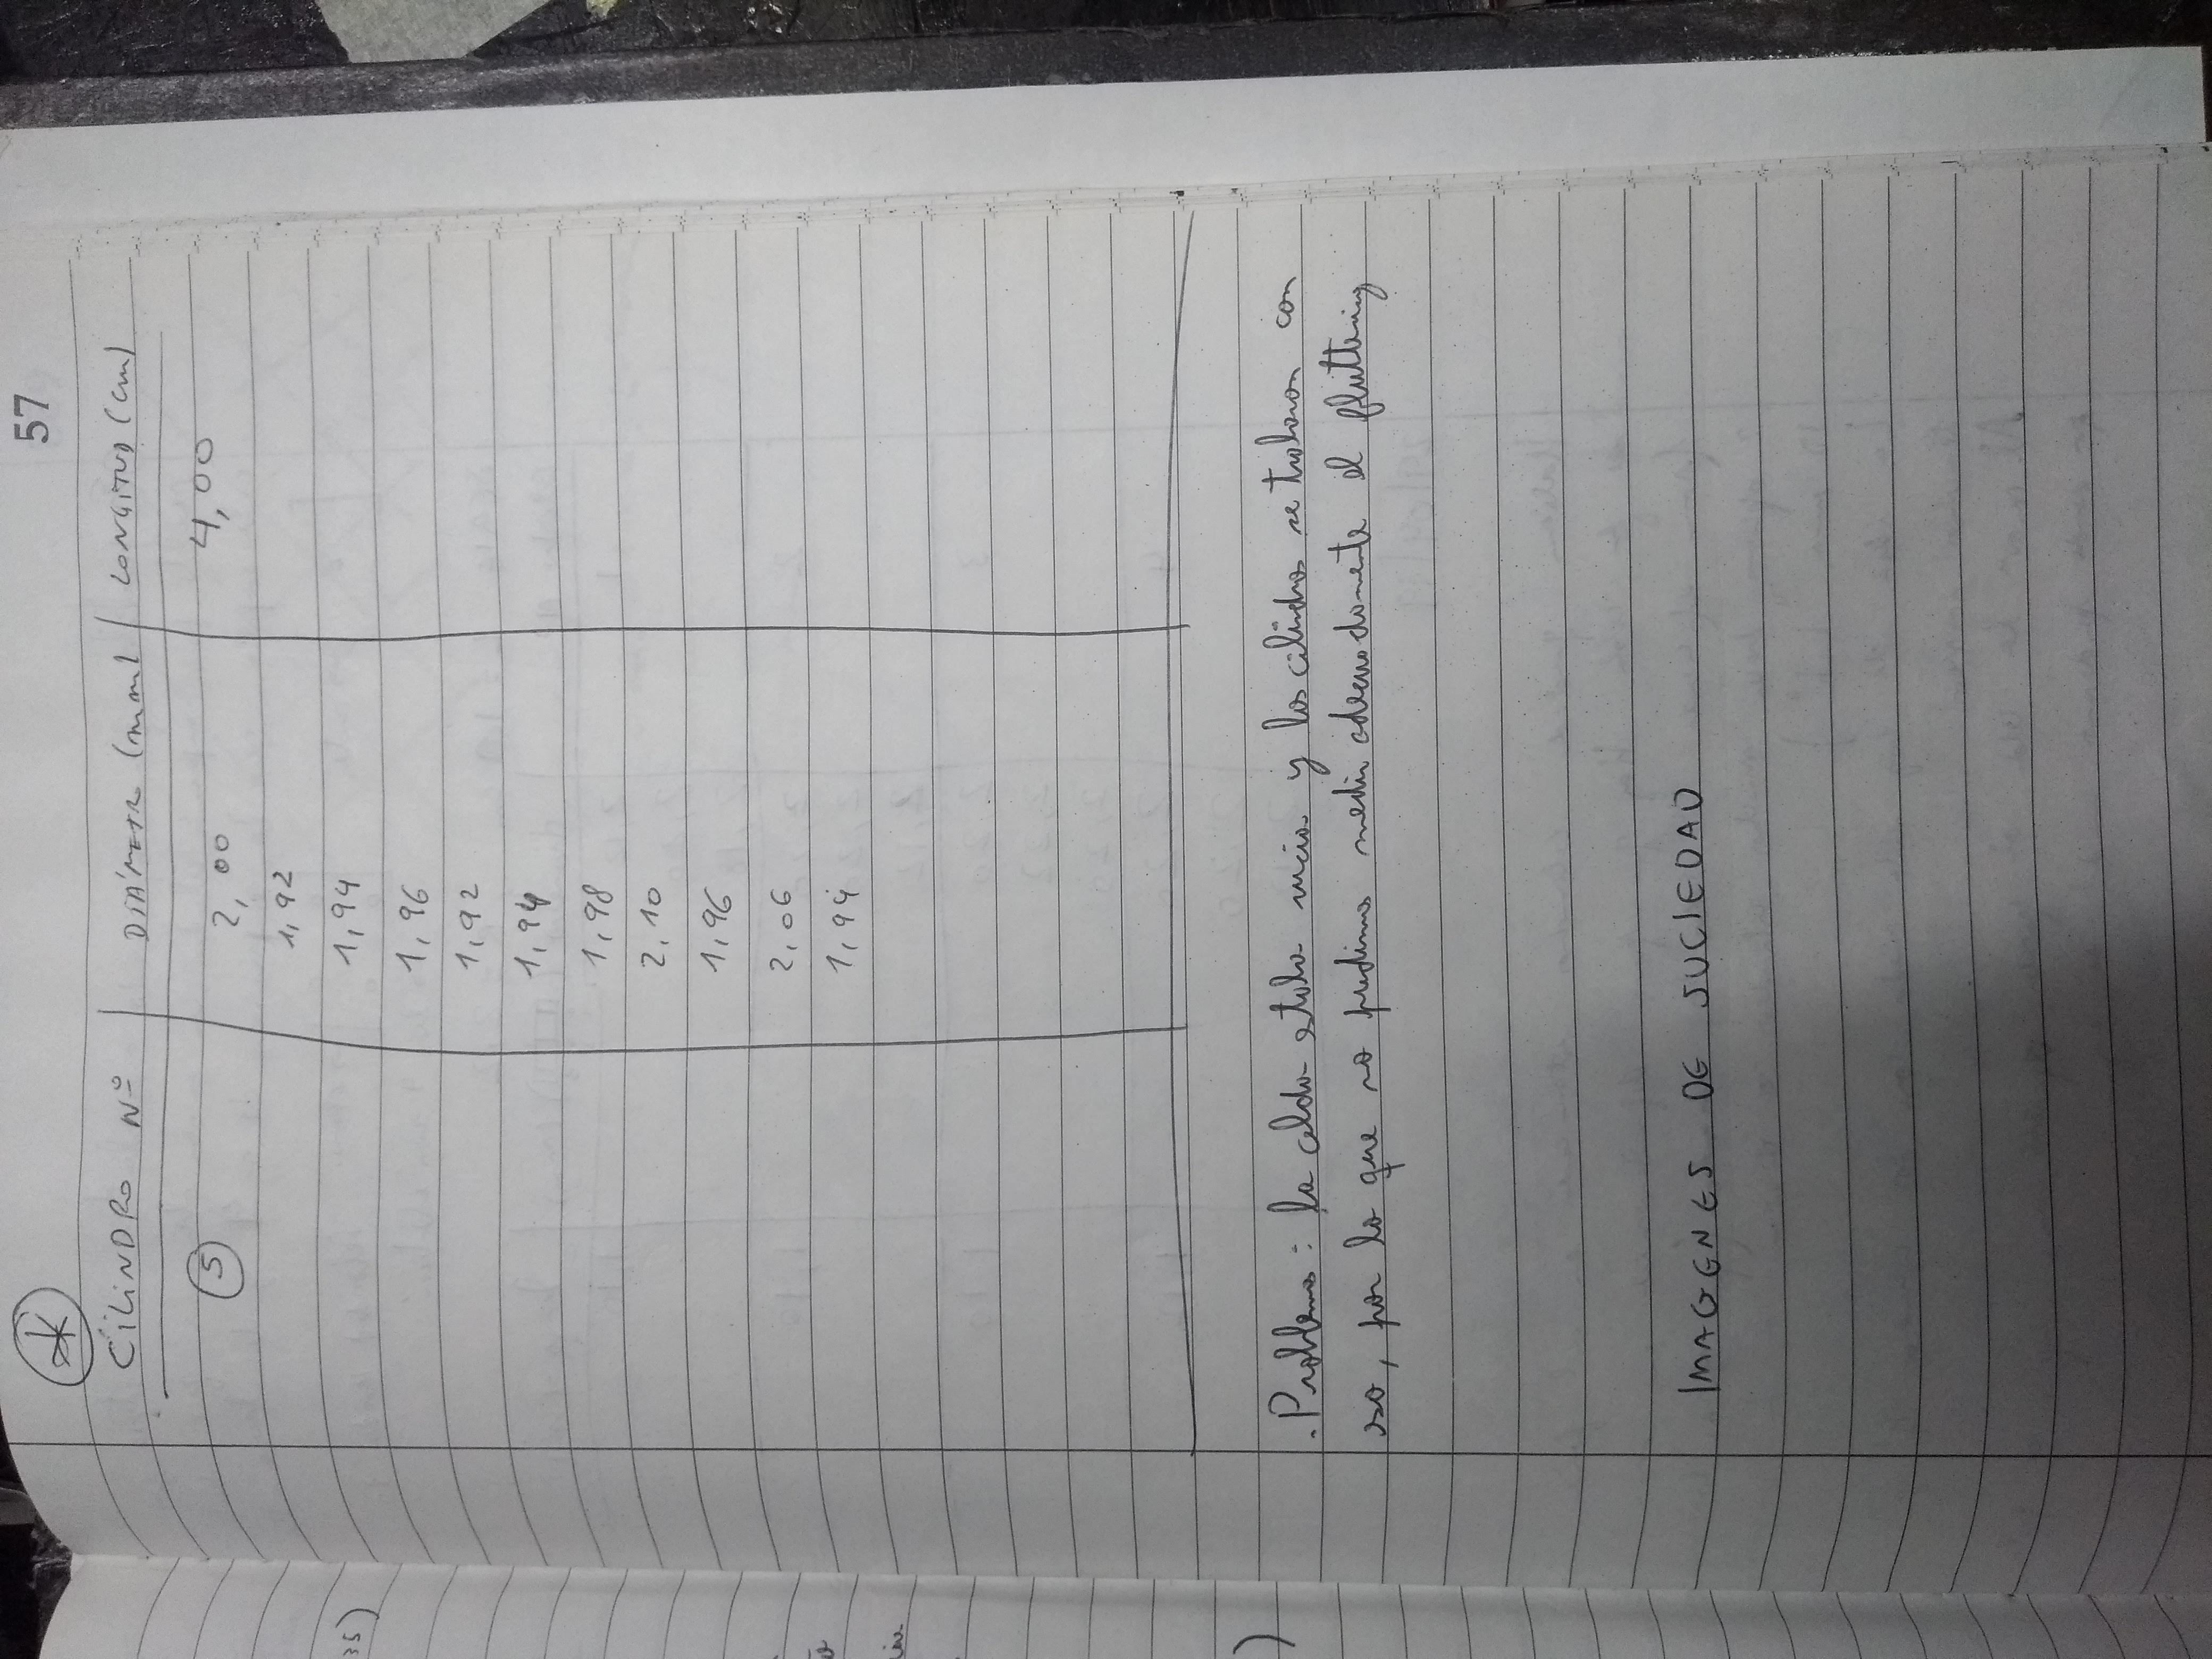 57
*
CILINDRO Nº | DIÁMETRO (mm) | LONGITUD (cm)
5 2,00 4,00
1,92
1,94
1,96
1,92
1,94
1,98
2,10
1,96
2,06
1,94
. Problema: la celda estaba sucia y los cilindros se trababan con
eso, por lo que no pudimos medir adecuadamente el fluttering
IMAGENES DE SUCIEDAD
35)
)